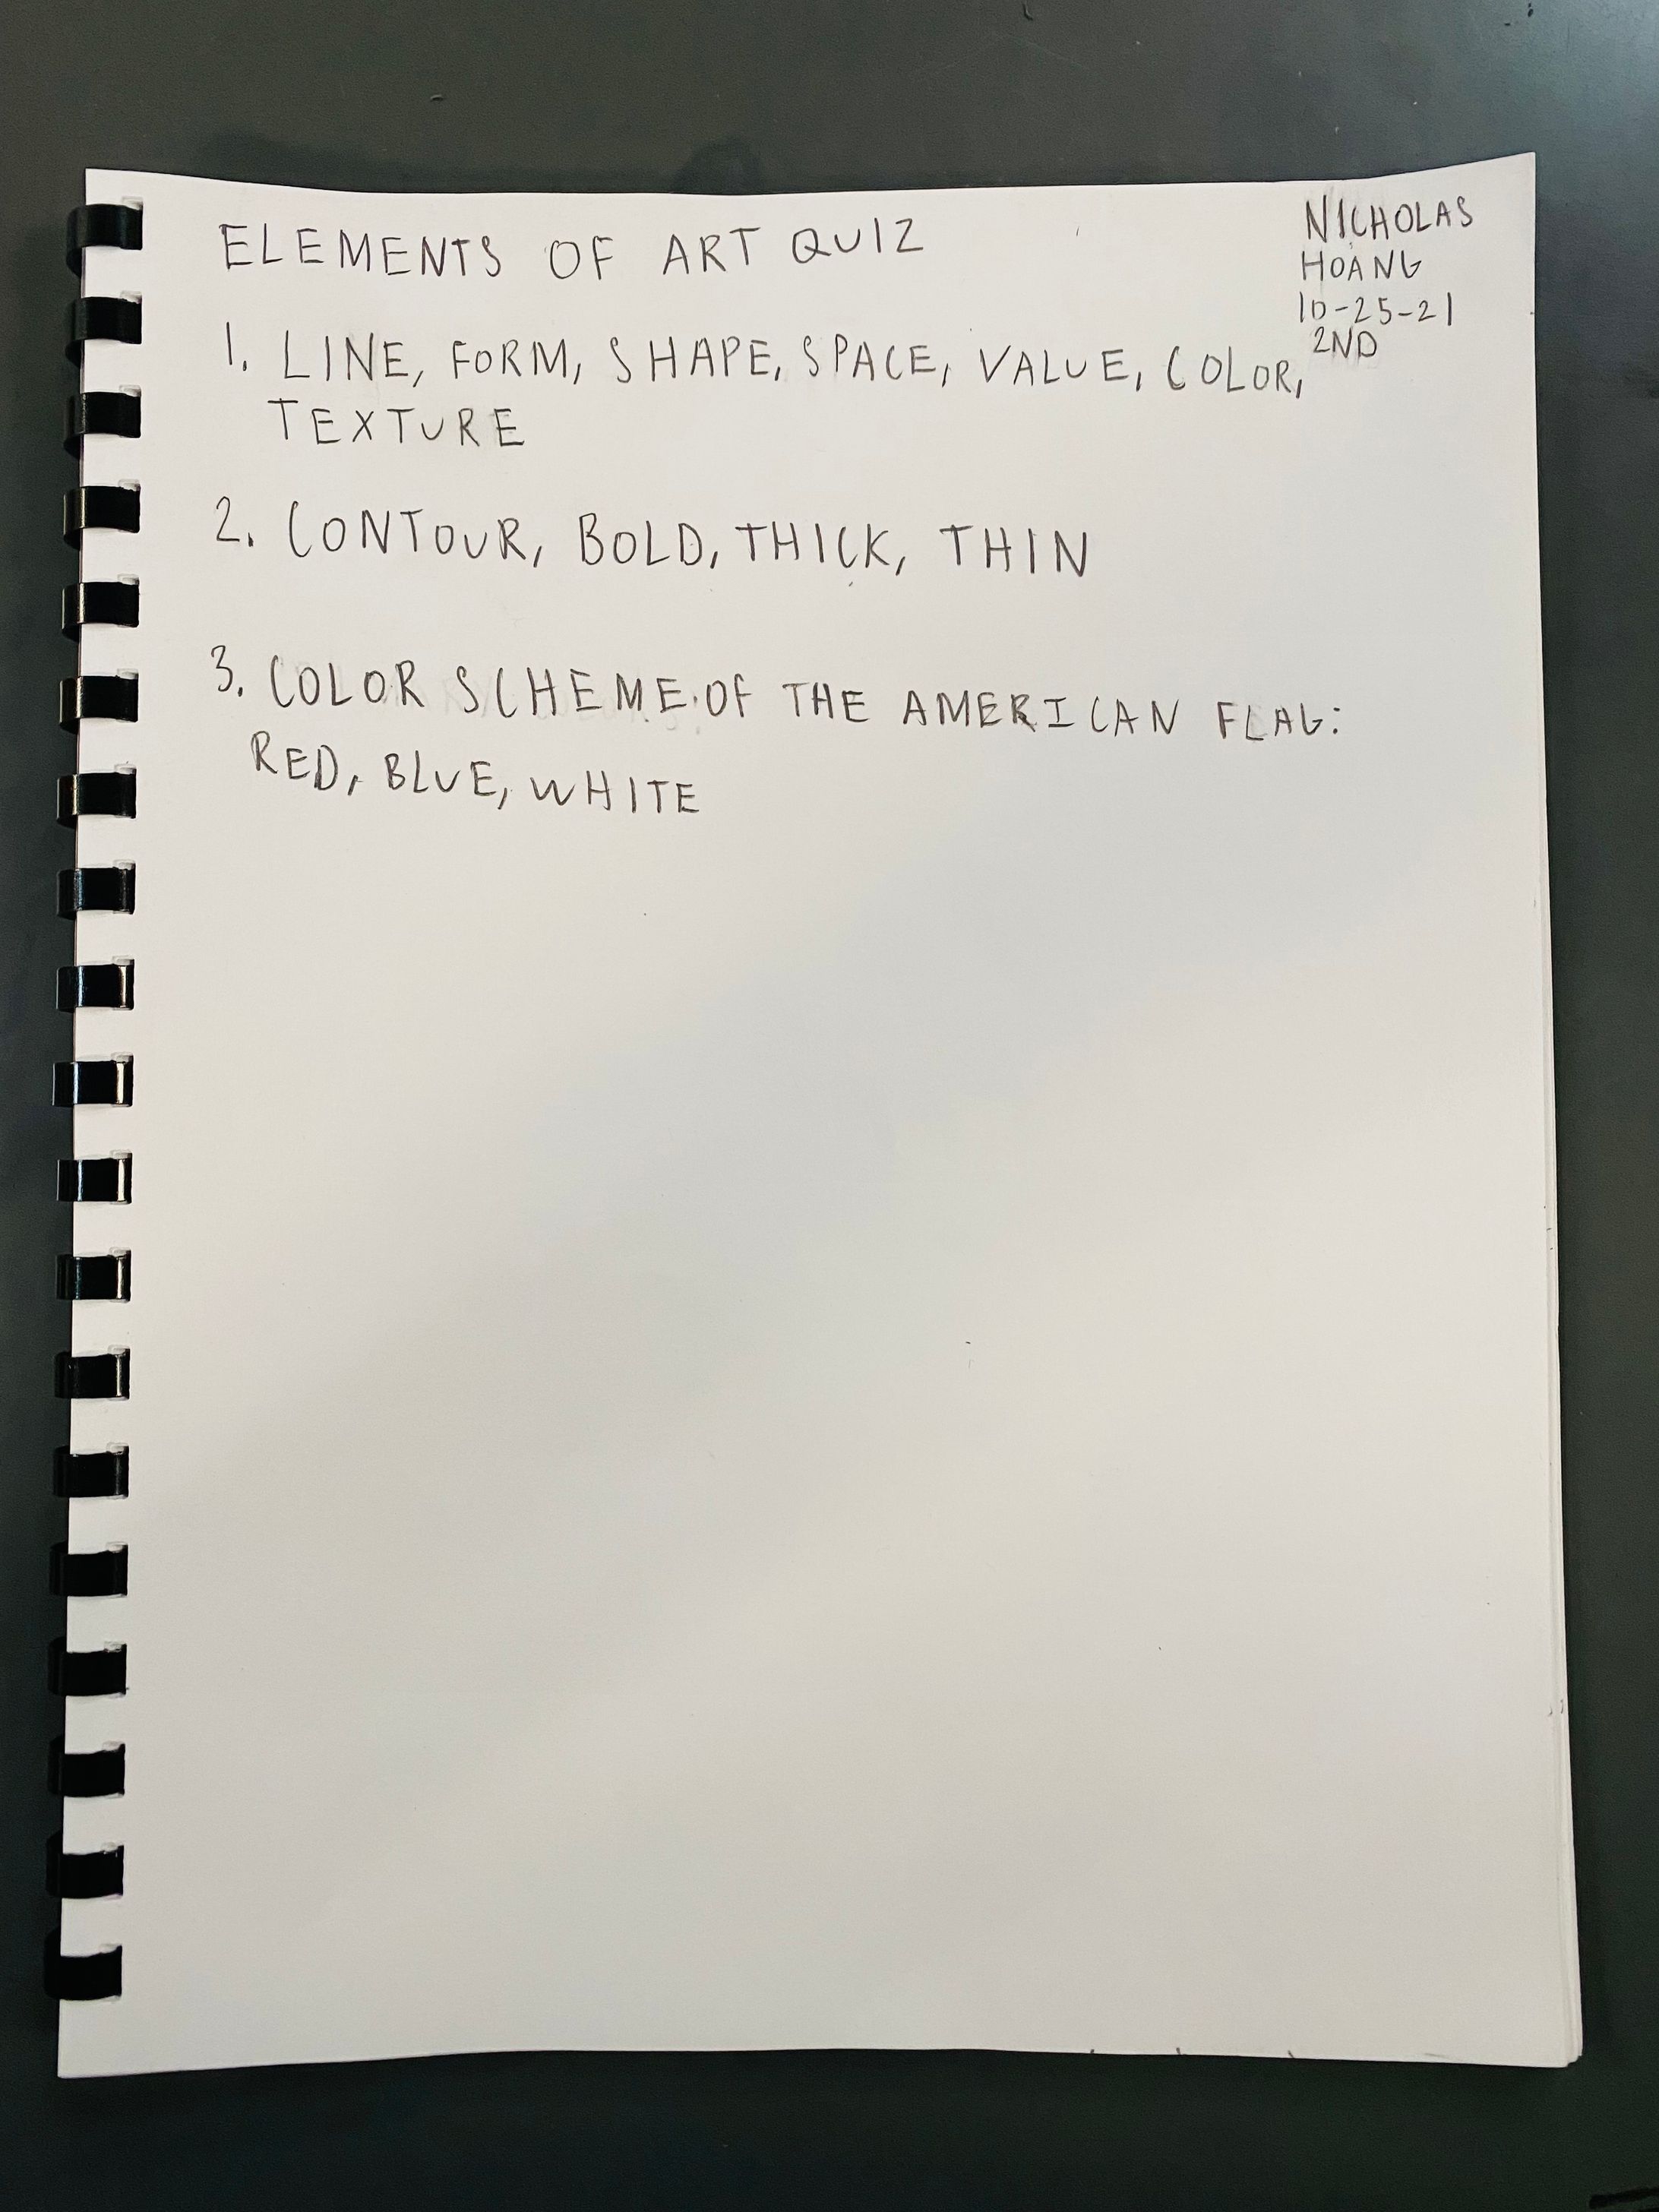 ELEMENTS OF ART QUIZ
NICHOLAS
HOANG
10-25-21
2ND
1. LINE, FORM, SHAPE, SPACE, VALUE, COLOR,
TEXTURE
2. CONTOUR, BOLD, THICK, THIN
3. COLOR SCHEME OF THE AMERICAN FLAG:
RED, BLUE, WHITE